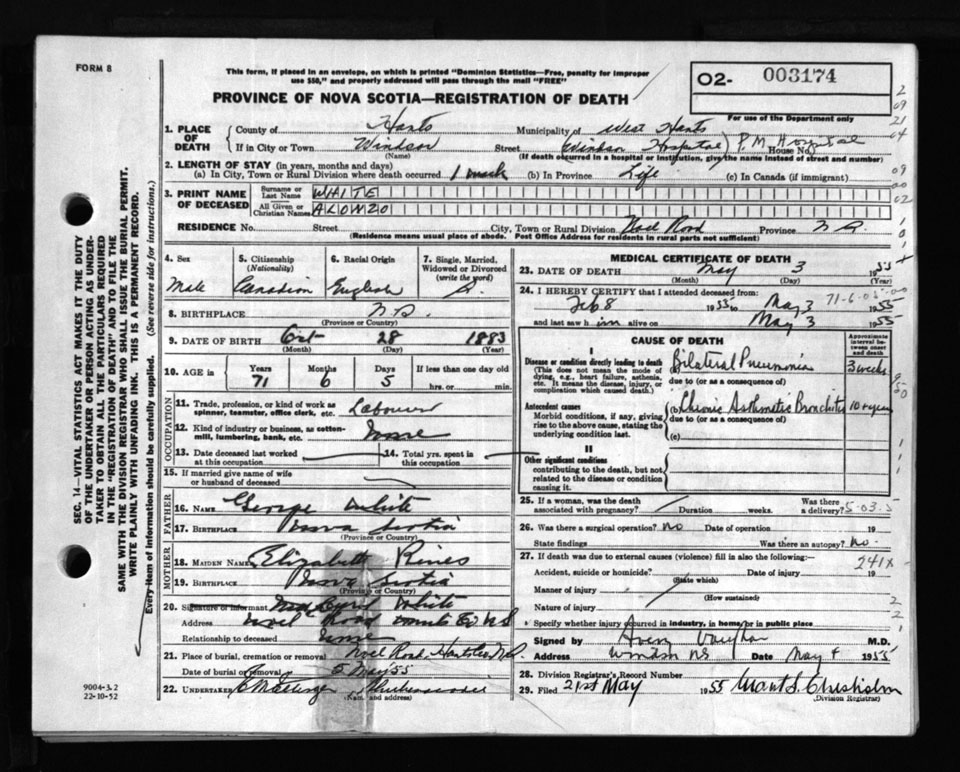 FORM 8
This form, if placed in an envelope, on which is printed "Dominion Statistics—Free, penalty for improper
use $50," and properly addressed will pass through the mail "FREE"
PROVINCE OF NOVA SCOTIA—REGISTRATION OF DEATH
O2- 003174
For use of the Department only
1. PLACE OF DEATH
County of Hants Municipality of West Hants
If in City or Town Windsor Street Windsor Hospital House No. P.M. Hospital
(Name) (If death occurred in a hospital or institution, give the name instead of street and number)
2. LENGTH OF STAY (in years, months and days)
(a) In City, Town or Rural Division where death occurred 1 week (b) In Province Life (c) In Canada (if immigrant)
3. PRINT NAME OF DECEASED
Surname or Last Name WHITE
All Given or Christian Names ALONZO
RESIDENCE No. Street City, Town or Rural Division Noel Road Province N.S.
(Residence means usual place of abode. Post Office Address for residents in rural parts not sufficient)
4. Sex
Male
5. Citizenship
(Nationality)
Canadian
6. Racial Origin
English
7. Single, Married, Widowed or Divorced
(write the word)
S.
8. BIRTHPLACE N.S.
(Province or Country)
9. DATE OF BIRTH Oct 28 1883
(Month) (Day) (Year)
10. AGE in Years Months Days If less than one day
71 6 5 hrs. or min.
OCCUPATION
11. Trade, profession, or kind of work as
spinner, teamster, office clerk, etc. Labourer
12. Kind of industry or business, as cotten-
mill, lumbering, bank, etc. none
13. Date deceased last worked
at this occupation
14. Total yrs. spent in
this occupation
15. If married give name of wife
or husband of deceased
FATHER
16. Name George White
17. Birthplace Nova Scotia
(Province or Country)
MOTHER
18. MAIDEN NAME Elizabeth Rines
19. BIRTHPLACE Nova Scotia
(Province or Country)
20. Signature of informant White
Address Noel Road Hants Co N.S
Relationship to deceased none
21. Place of burial, cremation or removal Noel Road, Hants Co N.S.
Date of burial or removal 5 May '55
22. UNDERTAKER
(Name and address)
MEDICAL CERTIFICATE OF DEATH
23. DATE OF DEATH May 3 1955
(Month) (Day) (Year)
24. I HEREBY CERTIFY that I attended deceased from:
Feb 8 1955 to May 3 1955
71-6-05-00
and last saw him alive on May 3 1955
CAUSE OF DEATH
Approximate interval between onset and death
I
Disease or condition directly leading to death
(This does not mean the mode of
dying, e.g., heart failure, asthenia,
etc. It means the disease, injury, or
complication which caused death.)
Bilateral Pneumonia 3 weeks
due to (or as a consequence of)
Antecedent causes
Morbid conditions, if any, giving
rise to the above cause, stating the
underlying condition last.
Chronic Asthmatic Bronchitis 10+ years
due to (or as a consequence of)
(c)
II
Other significant conditions
contributing to the death, but not
related to the disease or condition
causing it.
25. If a woman, was the death
associated with pregnancy? Duration weeks. Was there a delivery?
26. Was there a surgical operation? no Date of operation 19
State findings Was there an autopsy? no.
27. If death was due to external causes (violence) fill in also the following:— 241X
Accident, suicide or homicide? Date of injury 19
(State which)
Manner of injury
(How sustained)
Nature of injury
Specify whether injury occurred in industry, in home, or in public place
Signed by Avery Vaughan M.D.
Address Windsor NS Date May 4 1955
28. Division Registrar's Record Number
29. Filed 21st May 1955 Grant S. Chisholm
(Division Registrar)
9004-3.2
22-10-52
SEC. 14—VITAL STATISTICS ACT MAKES IT THE DUTY
OF THE UNDERTAKER OR PERSON ACTING AS UNDER-
TAKER TO OBTAIN ALL THE PARTICULARS REQUIRED
IN THE "REGISTRATION OF DEATH" AND TO FILE THE
SAME WITH THE DIVISION REGISTRAR WHO SHALL ISSUE THE BURIAL PERMIT.
WRITE PLAINLY WITH UNFADING INK. THIS IS A PERMANENT RECORD.
Every item of information should be carefully supplied. (See reverse side for instructions.)